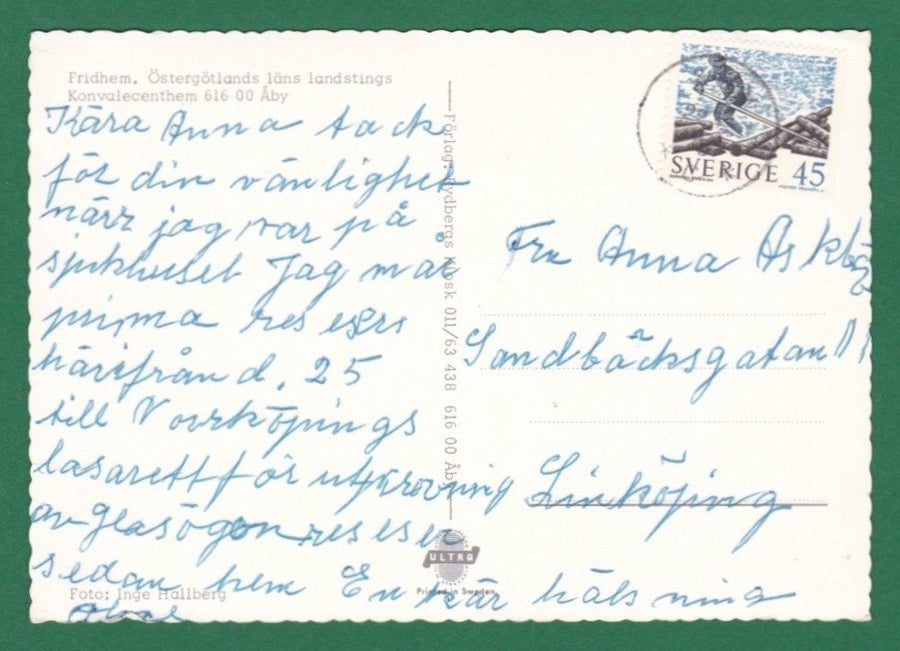 Fridhem. Östergötlands läns landstings
Konvalecenthem 616 00 Åby
Kära Anna tack
för din vänlighet
närr jag var på
sjukhuset Jag mår
prima res
härifrån d. 25
till Norrköpings
lasarett för utprovning
av glasögon
sedan hem En kär hälsning
Foto: Inge Hallberg
Förlag: Rydbergs Kiosk 011/63 438 616 00 Åby
ULTRA
Printed in Sweden
SVERIGE 45
Fru Anna
Sandbäcksgatan 11
Linköping